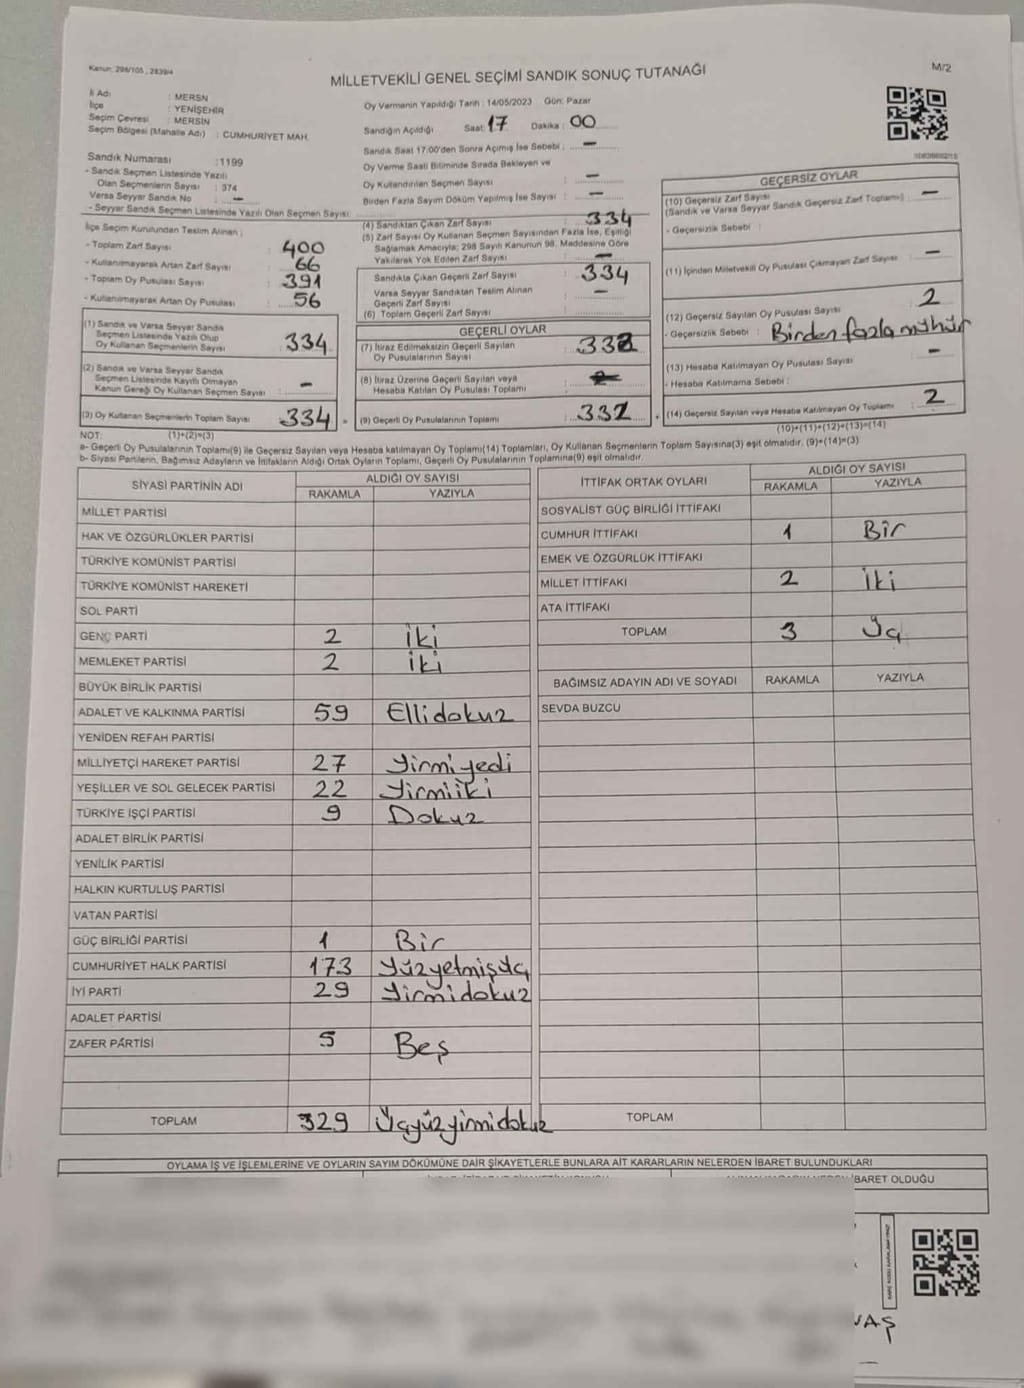 Kanun: 298/105, 2839/4
MİLLETVEKİLİ GENEL SEÇİMİ SANDIK SONUÇ TUTANAĞI
M/2
İl Adı : MERSN
İlçe : YENİŞEHİR
Seçim Çevresi : MERSİN
Seçim Bölgesi (Mahalle Adı) : CUMHURİYET MAH.
Oy Vermenin Yapıldığı Tarih : 14/05/2023 Gün: Pazar
Sandığın Açıldığı Saat: 17 Dakika : 00
Sandık Saat 17:00'den Sonra Açımış İse Sebebi : -
Oy Verme Saati Bitiminde Sırada Bekleyen ve
Oy Kullandırılan Seçmen Sayısı : -
Birden Fazla Sayım Döküm Yapılmış İse Sayısı : -
Sandık Numarası : 1199
- Sandık Seçmen Listesinde Yazılı
Olan Seçmenlerin Sayısı : 374
Varsa Seyyar Sandık No : -
- Seyyar Sandık Seçmen Listesinde Yazılı Olan Seçmen Sayısı:
İlçe Seçim Kurulundan Teslim Alınan ;
- Toplam Zarf Sayısı : 400
- Kullanılmayarak Artan Zarf Sayısı : 66
- Toplam Oy Pusulası Sayısı : 391
- Kullanılmayarak Artan Oy Pusulası : 56
(1) Sandık ve Varsa Seyyar Sandık
Seçmen Listesinde Yazılı Olup
Oy Kullanan Seçmenlerin Sayısı : 334
(2) Sandık ve Varsa Seyyar Sandık
Seçmen Listesinde Kayıtlı Olmayan
Kanun Gereği Oy Kullanan Seçmen Sayısı : -
(3) Oy Kullanan Seçmenlerin Toplam Sayısı : 334 =
(1)+(2)=(3)
(4) Sandıktan Çıkan Zarf Sayısı : 334
(5) Zarf Sayısı Oy Kullanan Seçmen Sayısından Fazla İse, Eşitliği
Sağlamak Amacıyla; 298 Sayılı Kanunun 98. Maddesine Göre
Yakılarak Yok Edilen Zarf Sayısı : -
Sandıkta Çıkan Geçerli Zarf Sayısı : 334
Varsa Seyyar Sandıktan Teslim Alınan
Geçerli Zarf Sayısı : -
(6) Toplam Geçerli Zarf Sayısı
GEÇERLİ OYLAR
(7) İtiraz Edilmeksizin Geçerli Sayılan
Oy Pusulalarının Sayısı : 332
(8) İtiraz Üzerine Geçerli Sayılan veya
Hesaba Katılan Oy Pusulası Toplamı :
(9) Geçerli Oy Pusulalarının Toplamı : 332 +
GEÇERSİZ OYLAR
(10) Geçersiz Zarf Sayısı
(Sandık ve Varsa Seyyar Sandık Geçersiz Zarf Toplamı) : -
- Geçersizlik Sebebi :
(11) İçinden Milletvekili Oy Pusulası Çıkmayan Zarf Sayısı : -
(12) Geçersiz Sayılan Oy Pusulası Sayısı : 2
- Geçersizlik Sebebi : Birden fazla mühür
(13) Hesaba Katılmayan Oy Pusulası Sayısı : -
- Hesaba Katılmama Sebebi :
(14) Geçersiz Sayılan veya Hesaba Katılmayan Oy Toplamı : 2
(10)+(11)+(12)+(13)=(14)
NOT:
a- Geçerli Oy Pusulalarının Toplamı(9) ile Geçersiz Sayılan veya Hesaba katılmayan Oy Toplamı(14) Toplamları, Oy Kullanan Seçmenlerin Toplam Sayısına(3) eşit olmalıdır. (9)+(14)=(3)
b- Siyasi Partilerin, Bağımsız Adayların ve İttifakların Aldığı Ortak Oyların Toplamı, Geçerli Oy Pusulalarının Toplamına(9) eşit olmalıdır.
SİYASİ PARTİNİN ADI ALDIĞI OY SAYISI
RAKAMLA YAZIYLA
MİLLET PARTİSİ
HAK VE ÖZGÜRLÜKLER PARTİSİ
TÜRKİYE KOMÜNİST PARTİSİ
TÜRKİYE KOMÜNİST HAREKETİ
SOL PARTİ
GENÇ PARTİ 2 İki
MEMLEKET PARTİSİ 2 İki
BÜYÜK BİRLİK PARTİSİ
ADALET VE KALKINMA PARTİSİ 59 Ellidokuz
YENİDEN REFAH PARTİSİ
MİLLİYETÇİ HAREKET PARTİSİ 27 Yirmiyedi
YEŞİLLER VE SOL GELECEK PARTİSİ 22 Yirmiiki
TÜRKİYE İŞÇİ PARTİSİ 9 Dokuz
ADALET BİRLİK PARTİSİ
YENİLİK PARTİSİ
HALKIN KURTULUŞ PARTİSİ
VATAN PARTİSİ
GÜÇ BİRLİĞİ PARTİSİ 1 Bir
CUMHURİYET HALK PARTİSİ 173 Yüzyetmişüç
İYİ PARTİ 29 Yirmidokuz
ADALET PARTİSİ
ZAFER PARTİSİ 5 Beş
TOPLAM 329 Üçyüzyirmidokuz
İTTİFAK ORTAK OYLARI ALDIĞI OY SAYISI
RAKAMLA YAZIYLA
SOSYALİST GÜÇ BİRLİĞİ İTTİFAKI
CUMHUR İTTİFAKI 1 Bir
EMEK VE ÖZGÜRLÜK İTTİFAKI
MİLLET İTTİFAKI 2 İki
ATA İTTİFAKI
TOPLAM 3 Üç
BAĞIMSIZ ADAYIN ADI VE SOYADI RAKAMLA YAZIYLA
SEVDA BUZCU
TOPLAM
OYLAMA İŞ VE İŞLEMLERİNE VE OYLARIN SAYIM DÖKÜMÜNE DAİR ŞİKAYETLERLE BUNLARA AİT KARARLARIN NELERDEN İBARET BULUNDUKLARI
İBARET OLDUĞU
VAŞ